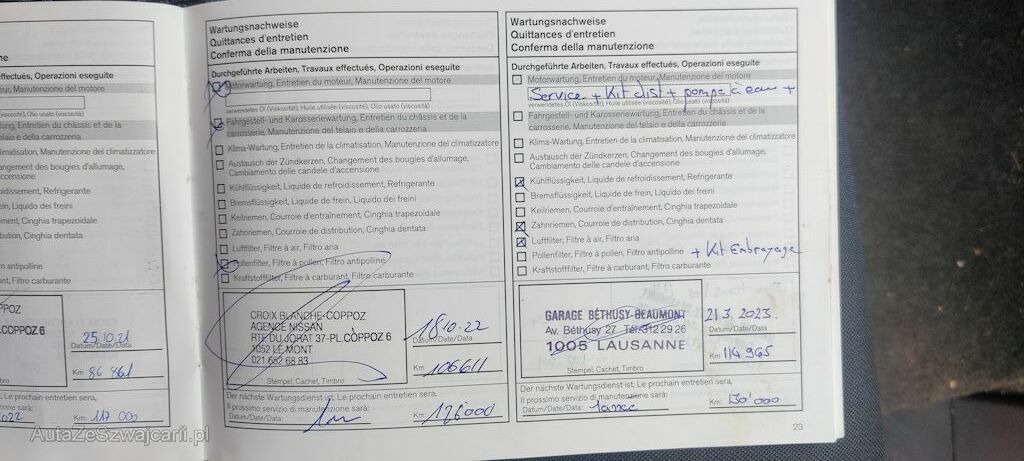 ne
effectués, Operazioni eseguite
ur, Manutenzione del motore
(viscosité), Olio usato (viscosità)
tung, Entretien du châssis et de la
telaio e della carrozzeria
limatisation, Manutenzione del climatizzatore
hangement des bougies d'allumage,
accensione
oidissement, Refrigerante
reins, Liquido dei freini
nement, Cinghia trapezoidale
tribution, Cinghia dentata
ro aria
ro antipolline
rant, Filtro carburante
PPOZ
.COPPOZ 6
25.10.21
Datum/Date/Data
Km 86 861
Timbro
entretien sera,
zione sarà:
2022
Km: 117 000
Wartungsnachweise
Quittances d'entretien
Conferma della manutenzione
Durchgeführte Arbeiten, Travaux effectués, Operazioni eseguite
Motorwartung, Entretien du moteur, Manutenzione del motore
verwendetes Öl (Viskosität), Huile utilisée (viscosité), Olio usato (viscosità)
Fahrgestell- und Karosseriewartung, Entretien du châssis et de la
carrosserie, Manutenzione del telaio e della carrozzeria
Klima-Wartung, Entretien de la climatisation, Manutenzione del climatizzatore
Austausch der Zündkerzen, Changement des bougies d'allumage,
Cambiamento delle candele d'accensione
Kühlflüssigkeit, Liquide de refroidissement, Refrigerante
Bremsflüssigkeit, Liquide de frein, Liquido dei freini
Keilriemen, Courroie d'entraînement, Cinghia trapezoidale
Zahnriemen, Courroie de distribution, Cinghia dentata
Luftfilter, Filtre à air, Filtro aria
Pollenfilter, Filtre à pollen, Filtro antipolline
Kraftstofffilter, Filtre à carburant, Filtro carburante
CROIX BLANCHE-COPPOZ
AGENCE NISSAN
RTE DU JORAT 37-PL.COPPOZ 6
1052 LE MONT
021 652 68 83
Stempel, Cachet, Timbro
18.10.22
Datum/Date/Data
Km 106611
Der nächste Wartungsdienst ist, Le prochain entretien sera,
Il prossimo servizio di manutenzione sarà:
Datum/Date/Data:
Km: 126000
Wartungsnachweise
Quittances d'entretien
Conferma della manutenzione
Durchgeführte Arbeiten, Travaux effectués, Operazioni eseguite
Motorwartung, Entretien du moteur, Manutenzione del motore
Service + Kit dist + pompe à eau +
verwendetes Öl (Viskosität), Huile utilisée (viscosité), Olio usato (viscosità)
Fahrgestell- und Karosseriewartung, Entretien du châssis et de la
carrosserie, Manutenzione del telaio e della carrozzeria
Klima-Wartung, Entretien de la climatisation, Manutenzione del climatizzatore
Austausch der Zündkerzen, Changement des bougies d'allumage,
Cambiamento delle candele d'accensione
Kühlflüssigkeit, Liquide de refroidissement, Refrigerante
Bremsflüssigkeit, Liquide de frein, Liquido dei freini
Keilriemen, Courroie d'entraînement, Cinghia trapezoidale
Zahnriemen, Courroie de distribution, Cinghia dentata
Luftfilter, Filtre à air, Filtro aria
Pollenfilter, Filtre à pollen, Filtro antipolline + Kit Embrayage
Kraftstofffilter, Filtre à carburant, Filtro carburante
GARAGE BÉTHUSY-BEAUMONT
Av. Béthusy 27 Tél. 312 29 26
1005 LAUSANNE
Stempel, Cachet, Timbro
21.3.2023.
Datum/Date/Data
Km 114 965
Der nächste Wartungsdienst ist, Le prochain entretien sera,
Il prossimo servizio di manutenzione sarà:
Datum/Date/Data:
Km: 130'000
23
AutaZeSzwajcarii.pl